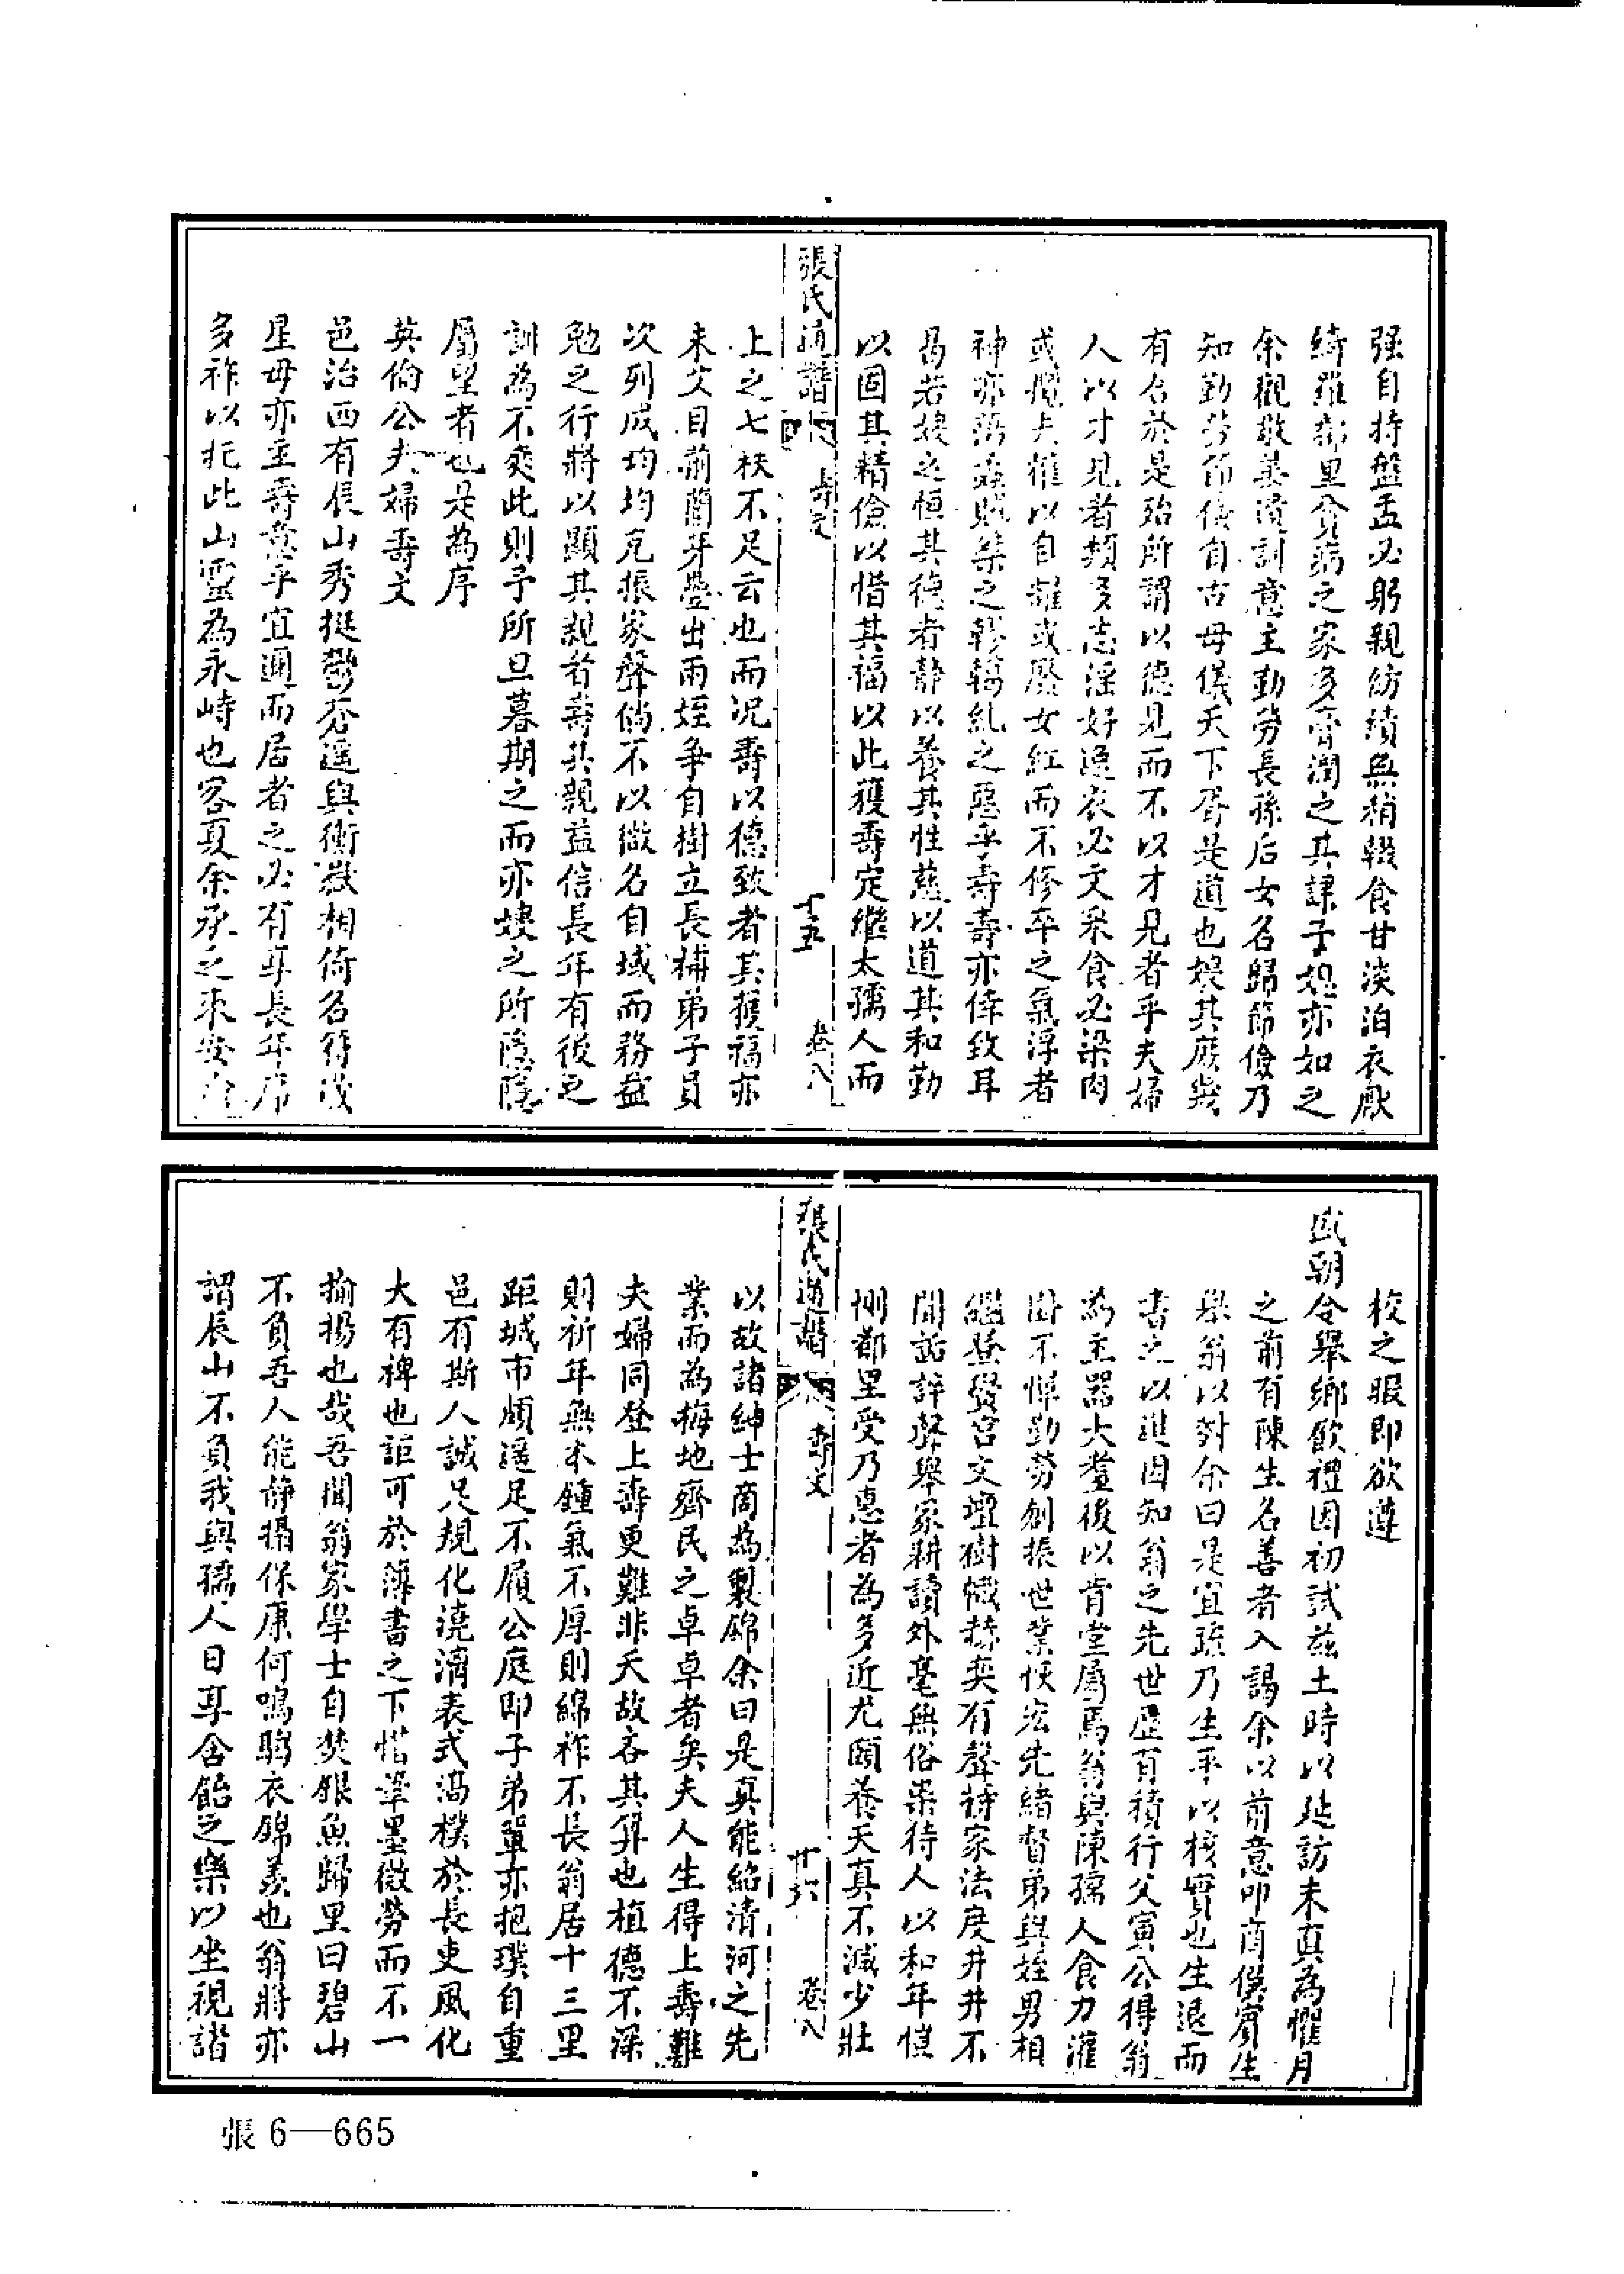 强自持盤盂必躬親紡績無稍輟食甘淡泊衣厭
綺羅鄰里貧病之家多膏潤之其課子媳亦如之
余觀敬姜遺訓意主勤勞長孫后女名歸節儉乃
知勤勞節儉自古母儀天下胥是道也娛其庶幾
有合於是殆所謂以德見而不以才見者乎夫婦
人以才見者類多志淫好逸衣必文采食必梁肉
或攬夫權以自雄或廢女紅而不修卒之氣浮者
神亦蕩疾財榮之轇轕乱之惡乎壽壽亦倖致耳
曷若娛之恒其德者静以養其性慈以道其和勤
以固其精儉以惜其福以此獲壽定繼太孺人而
張氏通譜 壽文 十五 卷八
上之七袟不足云也而况壽以德致者其獲福亦
未艾目前蘭芽疊出兩姪爭自樹立長補弟子員
次列成均均克振家聲倘不以微名自域而務益
勉之行將以顯其親者壽其親益信長年有後之
訓為不爽此則予所旦暮期之而亦娛之所隱隱
屬望者也是為序
英伯公夫婦壽文
邑治西有辰山秀挺鬱蒼遥與衡嶽相倚名符茂
星毋亦主壽意乎宜邇而居者之必有耳長年席
多祚以托此山靈為永峙也客夏余承之來安
校之暇即欲遵
盛朝令舉鄉飲禮因初試兹土時以延訪未真為懼月
之前有陳生名善者入謁余以前意叩商僎賓生
舉翁以對余曰是宜疏乃生平以核實也生退而
書之以進因知翁之先世歷有積行父寅公得翁
為主器大耋後以肯堂屬焉翁與陳孺人食力灌
園不憚勤勞創振世業恢宏先緒督弟與姪男相
繼登黌宫文壇樹幟赫奕有聲持家法度井井不
聞詬誶聲舉家耕讀外毫無俗染待人以和年愷
惻鄰里受乃惠者為多近尤頤養天真不減少壯
張氏通譜 壽文 廿六 卷八
以故諸紳士商為製錦余曰是真能紹清河之先
業而為梅地齊民之卓卓者矣夫人生得上壽難
夫婦同登上壽更難非天故吝其算也植德不深
則祈年無本鍾氣不厚則綿祚不長翁居十三里
距城市頗遥足不履公庭即子弟輩亦抱璞自重
邑有斯人誠足規化澆漓表式渦樸於長吏風化
大有裨也詎可於簿書之下惜筆墨微勞而不一
揄揚也哉吾聞翁家學士自焚銀魚歸里曰碧山
不負吾人能静攝保康何鳴騶衣錦羨也翁將亦
謂辰山不負我與孺人日耳含飴之樂以坐視諸
張 6—665